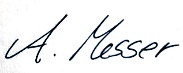 A. Messer